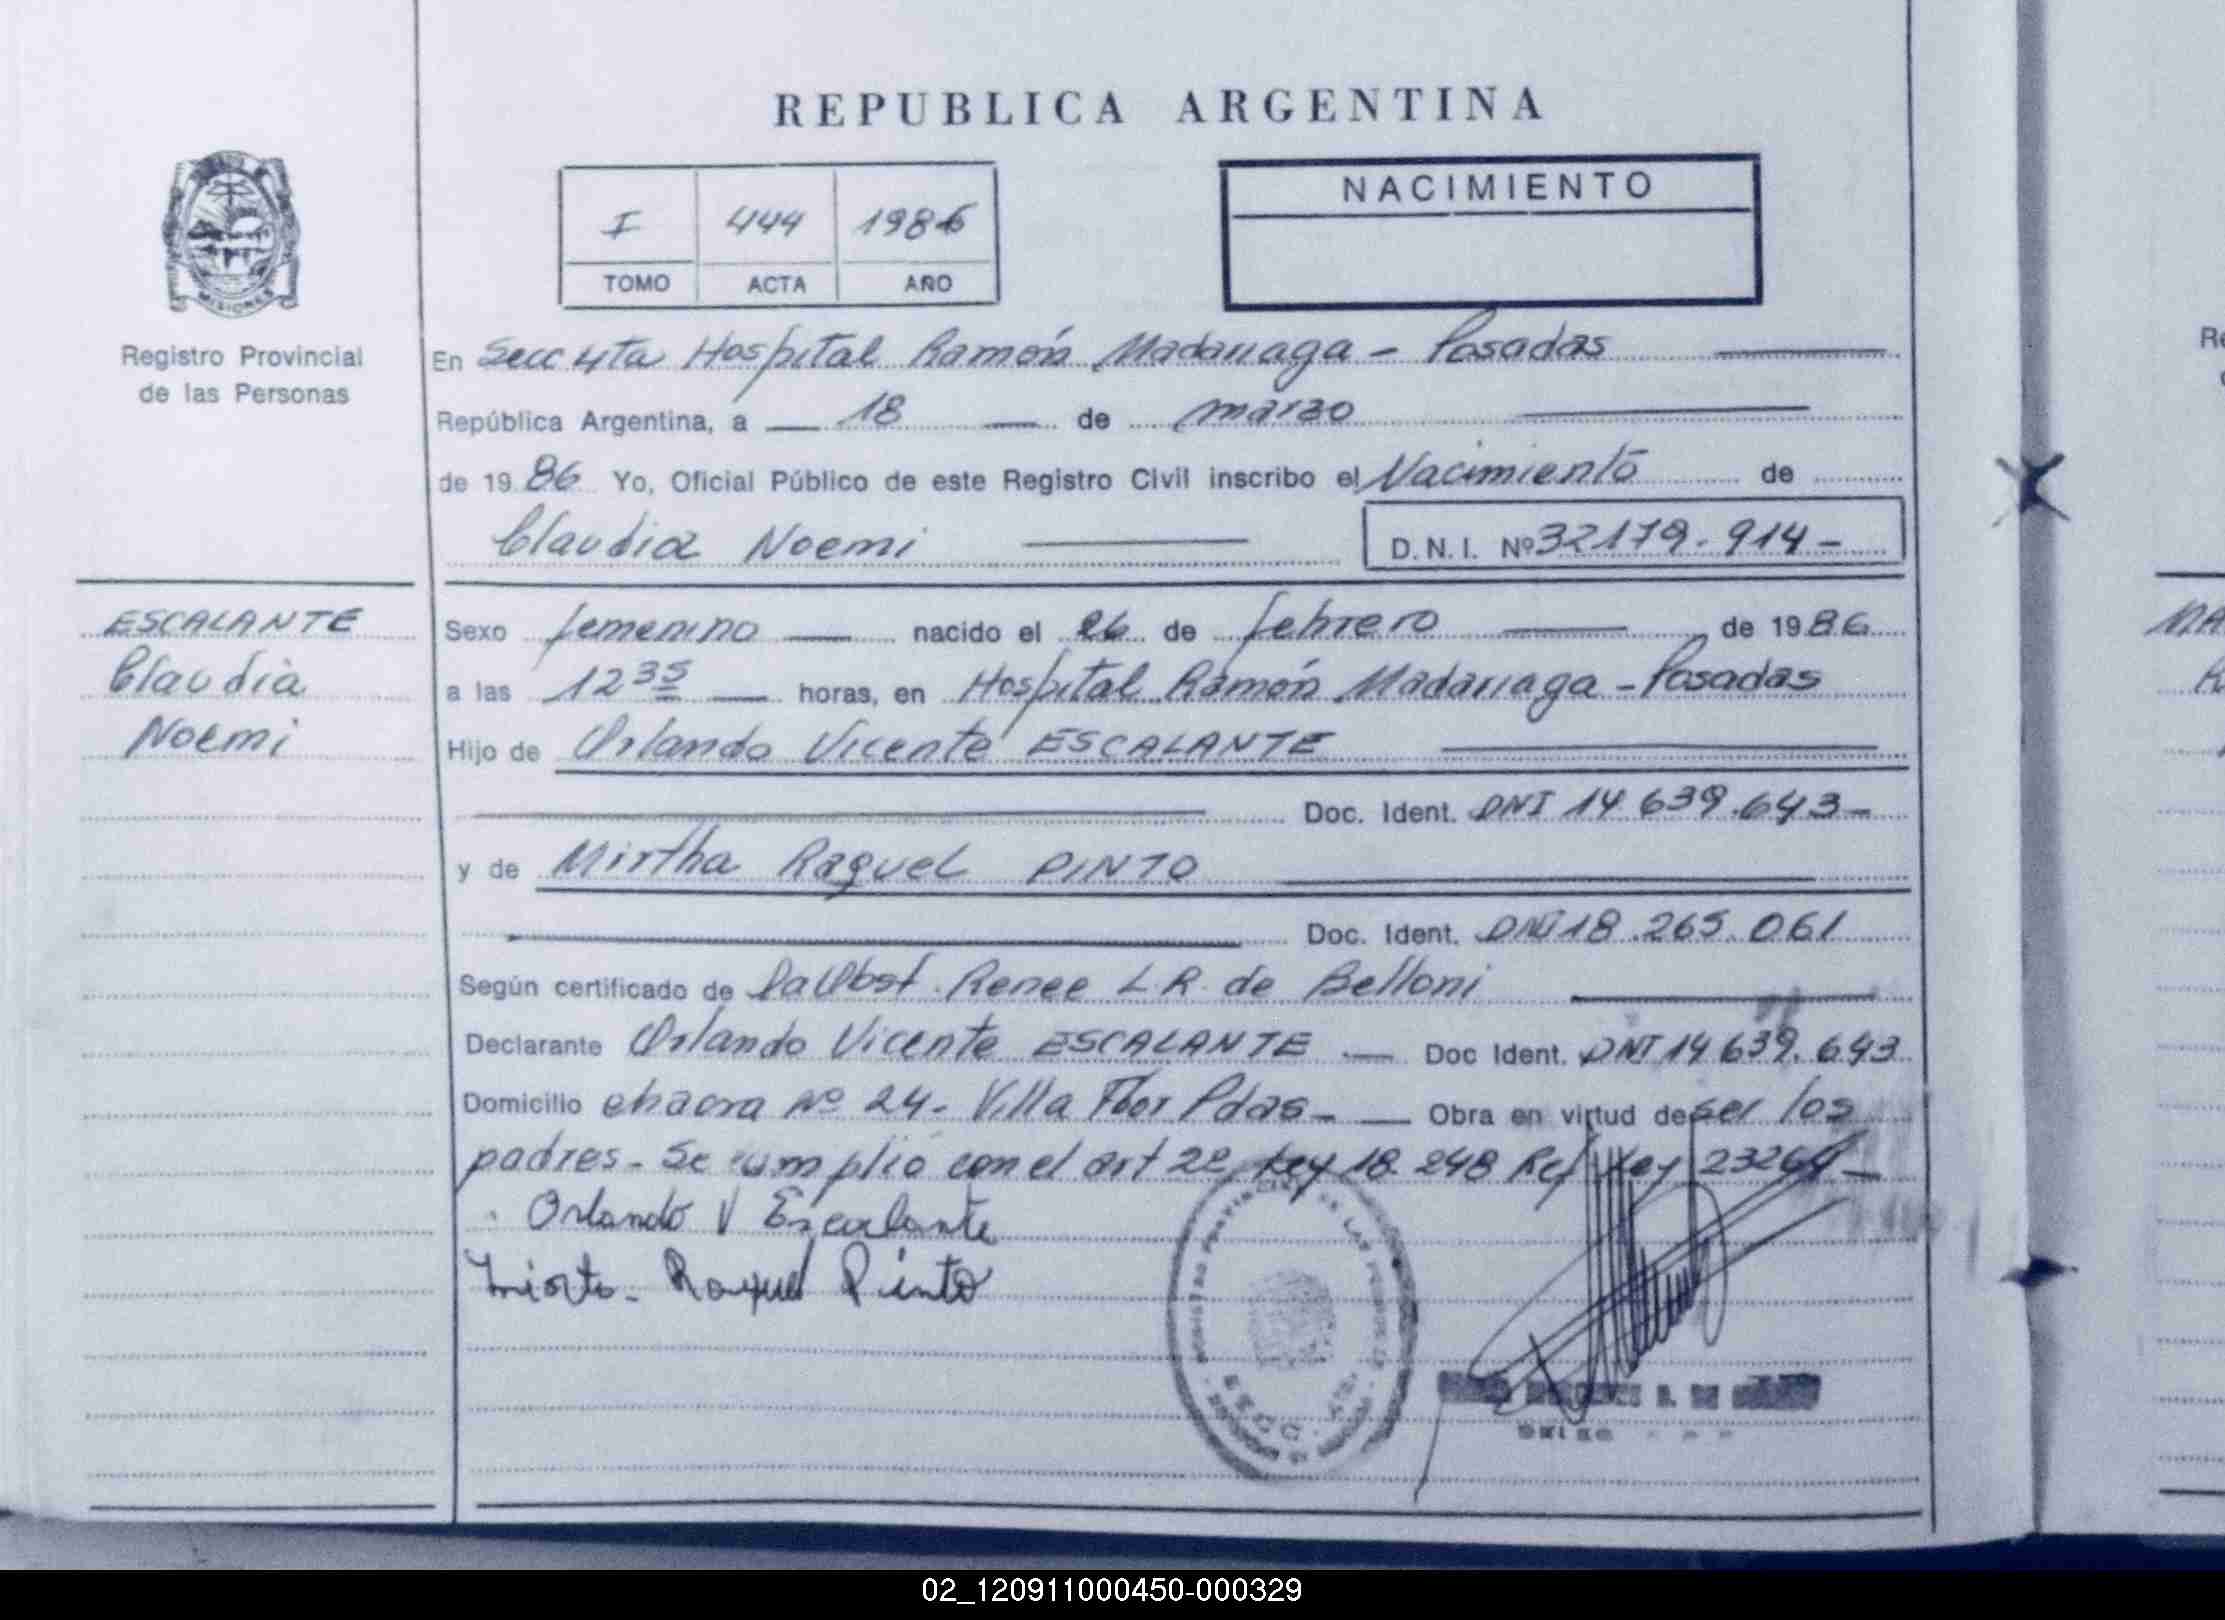 REPUBLICA ARGENTINA
I 444 1986
TOMO ACTA AÑO
NACIMIENTO
MISIONES
Registro Provincial
de las Personas
En Secc 4ta Hospital Ramón Madariaga - Posadas
República Argentina, a 18 de marzo
de 1986 Yo, Oficial Público de este Registro Civil inscribo el Nacimiento de
Claudia Noemi D.N.I. Nº 32179.914-
ESCALANTE
Claudia
Noemi
Sexo femenino nacido el 26 de febrero de 1986
a las 12 35 horas, en Hospital Ramón Madariaga - Posadas
Hijo de Orlando Vicente ESCALANTE
Doc. Ident. DNI 14.639.643-
y de Mirtha Raquel PINTO
Doc. Ident. DNI 18.265.061
Según certificado de la Obst. Renee L R de Belloni
Declarante Orlando Vicente ESCALANTE Doc Ident. DNI 14 639.643
Domicilio chacra Nº 24- Villa Flor Pdas- Obra en virtud de ser los
padres- Se cumplió con el art 2º Ley 18.248 Ref Ley 23264-
Orlando V Escalante
Raquel Pinto
02_120911000450-000329